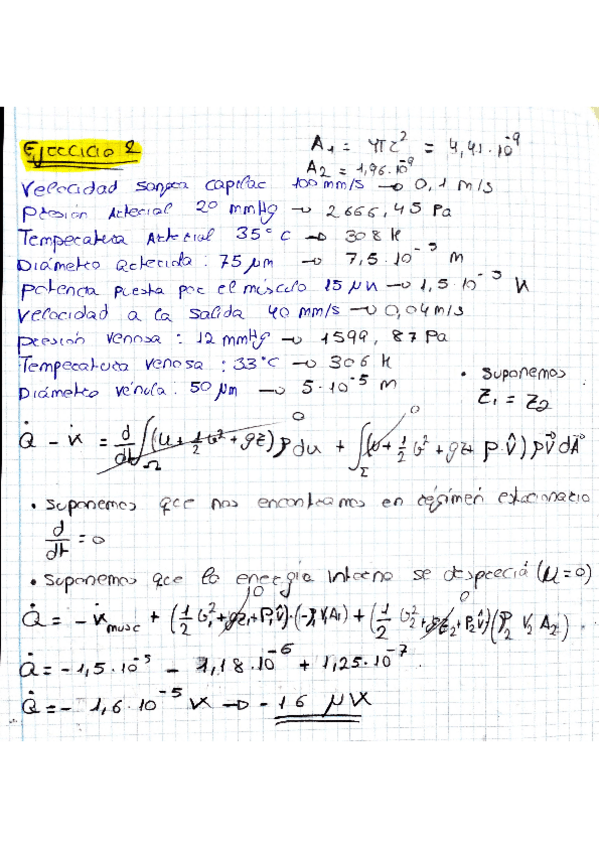 Ejercicio 2
A1 = 4πr² = 4,41·10⁻⁹
A2 = 1,96·10⁻⁹
Velocidad sangre capilar 100 mm/s → 0,1 m/s
Presión Arterial 20 mmHg → 2666,45 Pa
Temperatura Arterial 35°C → 308 K
Diámetro arteriola: 75 μm → 7,5·10⁻⁵ m
potencia puesta por el músculo 15 μW → 1,5·10⁻⁵ W
velocidad a la salida 40 mm/s → 0,04 m/s
presión venosa: 12 mmHg → 1599,87 Pa
Temperatura venosa: 33°C → 306 K
Diámetro vénula: 50 μm → 5·10⁻⁵ m
• Suponemos
Z1 = Z2
Q̇ - Ẇ = d/dt ∫Ω (u + 1/2 v² + gz) ρ du + ∫Σ (u + 1/2 v² + gz + P·V̂) ρV⃗ dA⃗
• Suponemos que nos encontramos en régimen estacionario
d/dt = 0
• Suponemos que la energía interna se desprecia (μ=0)
Q̇ = -Ẇmusc + (1/2 v1² + gz1 + P1V̂)·(-ρ1V1A1) + (1/2 v2² + gz2 + P2V̂)(ρ2 V2 A2).
Q̇ = -1,5·10⁻⁵ - 1,18·10⁻⁶ + 1,25·10⁻⁷.
Q̇ = - 1,6·10⁻⁵ W → -16 μW